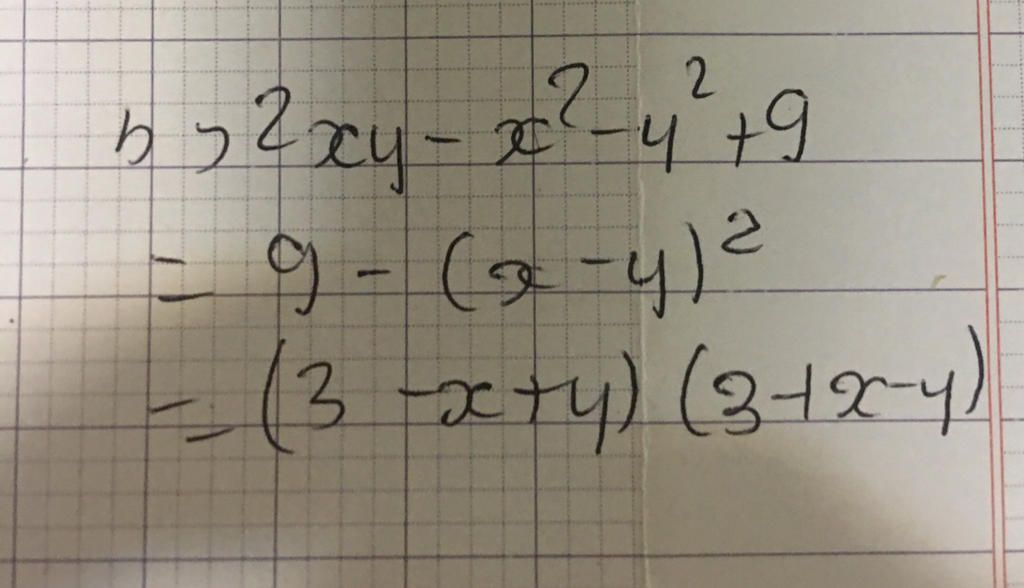 b) 2xy - x² - y² + 9
= 9 - (x - y)²
= (3 - x + y) (3 + x - y)